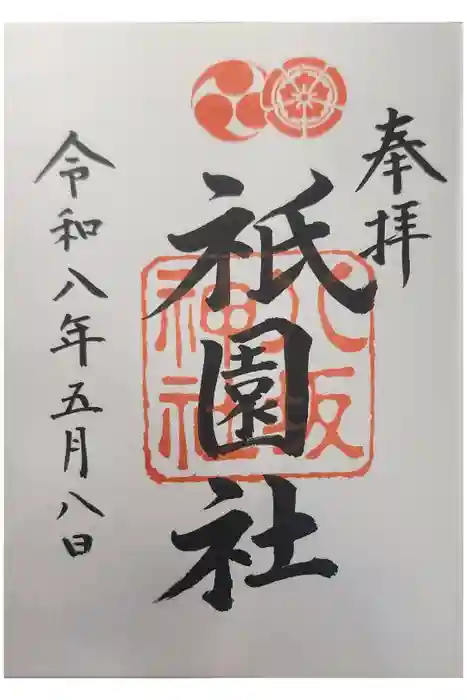 奉拝
祇園社
八坂
神社
令和八年五月八日